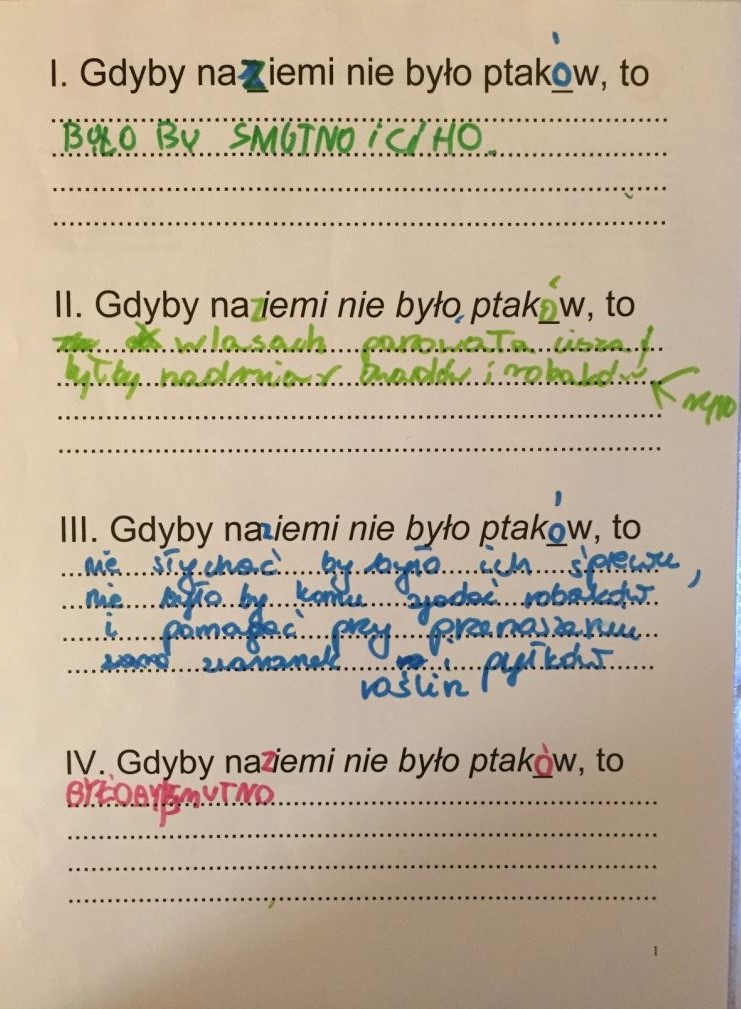 I. Gdyby na ziemi nie było ptaków, to
BYŁO BY SMUTNO i CIHO.
II. Gdyby na ziemi nie było ptaków, to
w lasach panowała cisza /
byłby nadmiar owadów i robaków
III. Gdyby na ziemi nie było ptaków, to
nie słychać by było ich śpiewu,
nie było by komu zjadać robaków
i pomagać przy przenoszeniu
ziaranek i pyłków
roślin
IV. Gdyby na ziemi nie było ptaków, to
BYŁOBY SMUTNO
1